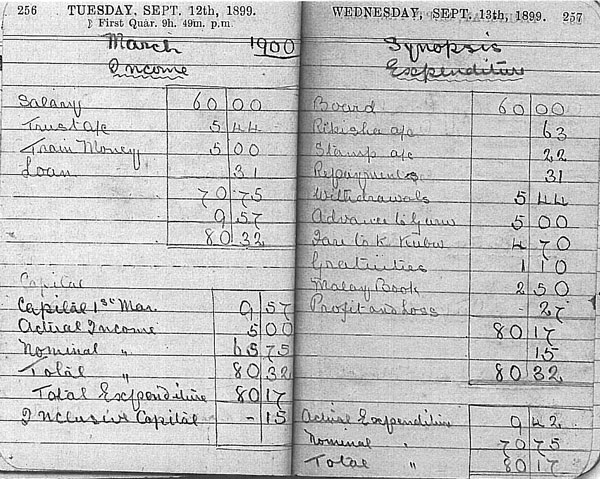 256 TUESDAY, SEPT. 12th, 1899.
First Quar. 9h. 49m. p.m.
March 1900
Income
Salary 60 00
Trust a/c 5 44
Train Money 5 00
Loan . 31
70 75
9 57
80 32
Capital
Capital 1st Mar. 9 57
Actual Income 5 00
Nominal " 65 75
Total " 80 32
Total Expenditure 80 17
Inclusive Capital - 15
WEDNESDAY, SEPT. 13th, 1899. 257
Synopsis
Expenditure
Board 60 00
Rikisha a/c 63
Stamp a/c 22
Repayments 31
Withdrawals 5 44
Advance to Guru 5 00
Fare to K. Kubu 4 70
Gratuities 1 10
Malay Book 2 50
Profit and Loss - 27
80 17
15
80 32
Actual Expenditure 9 42
Nominal " 70 75
Total " 80 17